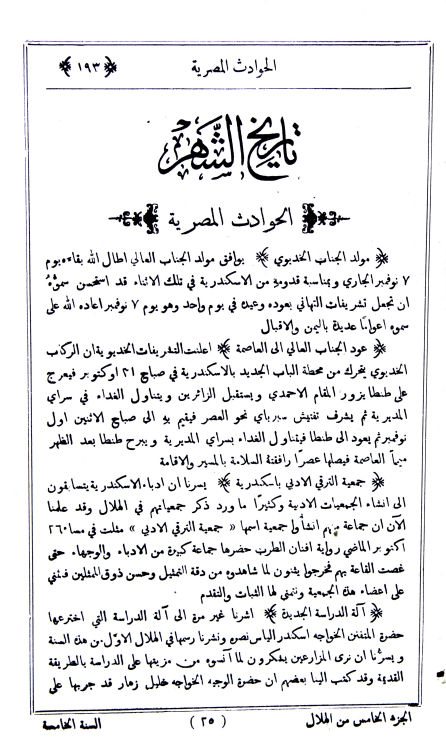 الحوادث المصرية
﴿ ١٩٣ ﴾
تاريخ الشهر
الحوادث المصرية
﴿ مولد الجناب الخديوي ﴾ يوافق مولد الجناب العالي اطال الله بقاءه يوم
٧ نوفمبر الجاري وبمناسبة قدومهِ من الاسكندرية في تلك الاثناء قد استحسن سموُّهُ
ان تجعل تشريفات التهاني بعوده وعيده في يوم واحد وهو يوم ٧ نوفمبر اعاده الله على
سموه اعوامًا عديدة باليمن والاقبال
﴿ عود الجناب العالي الى العاصمة ﴾ اعلنت التشريفات الخديوية ان الركاب
الخديوي يتحرك من محطة الباب الجديد بالاسكندرية في صباح ٣١ اوكتوبر فيعرج
على طنطا يزور المقام الاحمدي ويستقبل الزائرين ويتناول الغداء في سراي
المديرية ثم يشرف تفتيش سبرباي نحو العصر فيقيم بهِ الى صباح الاثنين اول
نوفمبر ثم يعود الى طنطا فيتناول الغداء بسراي المديرية ويبرح طنطا بعد الظهر
ميمماً العاصمة فيصلها عصرًا رافقتهُ السلامة بالمسير والاقامة
﴿ جمعية الترقي الادبي باسكندرية ﴾ يسرنا ان ادباء الاسكندرية يتسابقون
الى انشاء الجمعيات الادبية وكثيرًا ما ورد ذكر جمعياتهم في الهلال وقد علمنا
الآن ان جماعة منهم انشأوا جمعية اسمها « جمعية الترقي الادبي » مثلت في مساء ٢٦
اكتوبر الماضي رواية افنان الطرب حضرها جماعة كبيرة من الادباء والوجهاء حتى
غصت القاعة بهم فخرجوا يثنون لما شاهدوه من دقة التمثيل وحسن ذوق الممثلين فنثني
على اعضاء هذه الجمعية ونتمنى لها الثبات والتقدم
﴿ آلة الدراسة الجديدة ﴾ اشرنا غير مرة الى آلة الدراسة التي اخترعها
حضرة المتفنن الخواجه اسكندر الياس نصره ونشرنا رسمها في الهلال الاول من هذه السنة
ويسرُّنا ان نرى المزارعين يشكرون لما آنسوه من مزيتها على الدراسة بالطريقة
القديمة وقد كتب الينا بعضهم ان حضرة الوجيه الخواجه خليل زهار قد جربها على
الجزء الخامس من الهلال
( ٢٥ )
السنة الخامسة